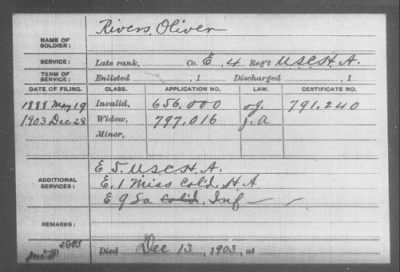 NAME OF SOLDIER: Rivers, Oliver
SERVICE: Late rank, Co. E, 4 Reg't U.S.C.H.A.
TERM OF SERVICE: Enlisted , 1 Discharged , 1
DATE OF FILING. CLASS. APPLICATION NO. LAW. CERTIFICATE NO.
May 19 Invalid, 656,000 791,240
1903 Dec. 28 Widow, 797,016
Minor,
ADDITIONAL SERVICES: E 5, U.S.C.H.A.
E, 1 Miss Col'd. H.A
E 9 La Col'd. Inf
REMARKS:
Died Dec 13, 1903, at